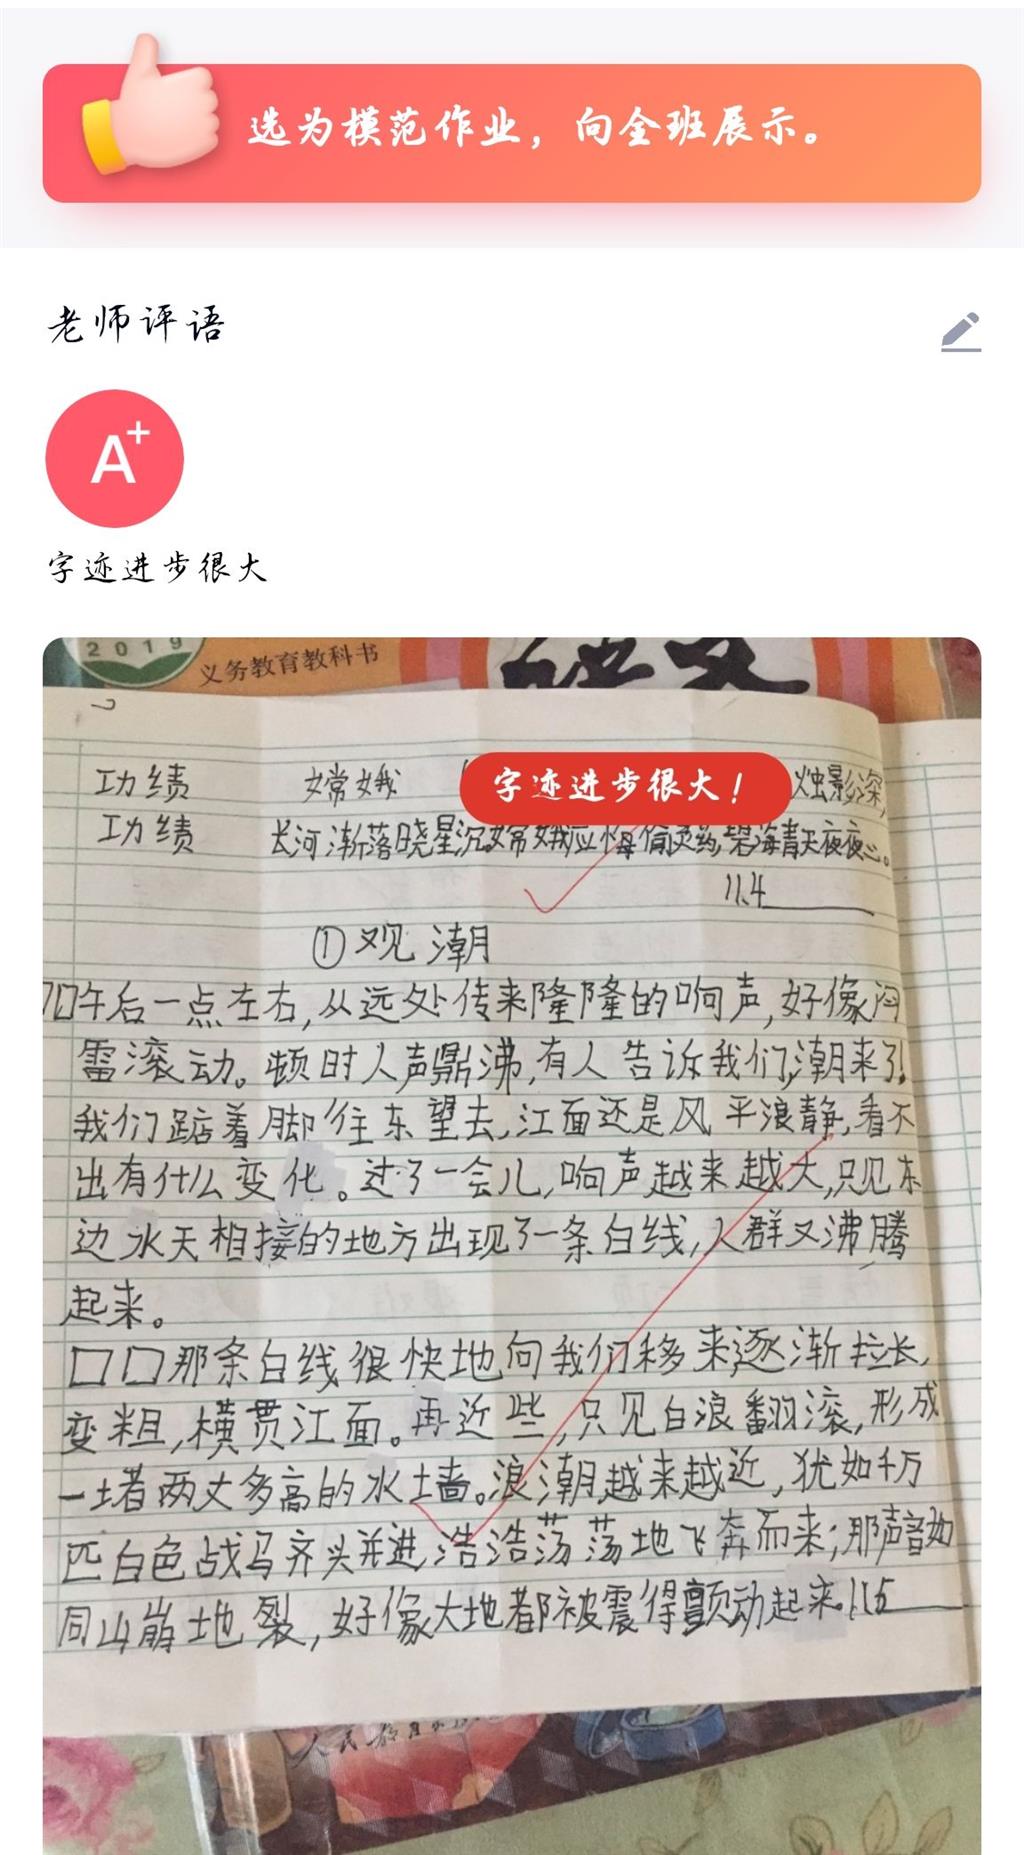 选为模范作业，向全班展示。
老师评语
A+
字迹进步很大
2019
义务教育教科书
语文
功绩 嫦娥 烛影深,
字迹进步很大！
功绩 长河渐落晓星沉嫦娥应悔偷灵药,碧海青天夜夜心。
11.4
①观潮
口口午后一点左右,从远处传来隆隆的响声,好像闷
雷滚动。顿时人声鼎沸,有人告诉我们,潮来了!
我们踮着脚往东望去,江面还是风平浪静,看不
出有什么变化。过了一会儿,响声越来越大,只见东
边水天相接的地方出现了一条白线,人群又沸腾
起来。
口口那条白线很快地向我们移来,逐渐拉长,
变粗,横贯江面。再近些,只见白浪翻滚,形成
一堵两丈多高的水墙。浪潮越来越近,犹如千万
匹白色战马齐头并进,浩浩荡荡地飞奔而来;那声音如
同山崩地裂,好像大地都被震得颤动起来.11.5
人民教育